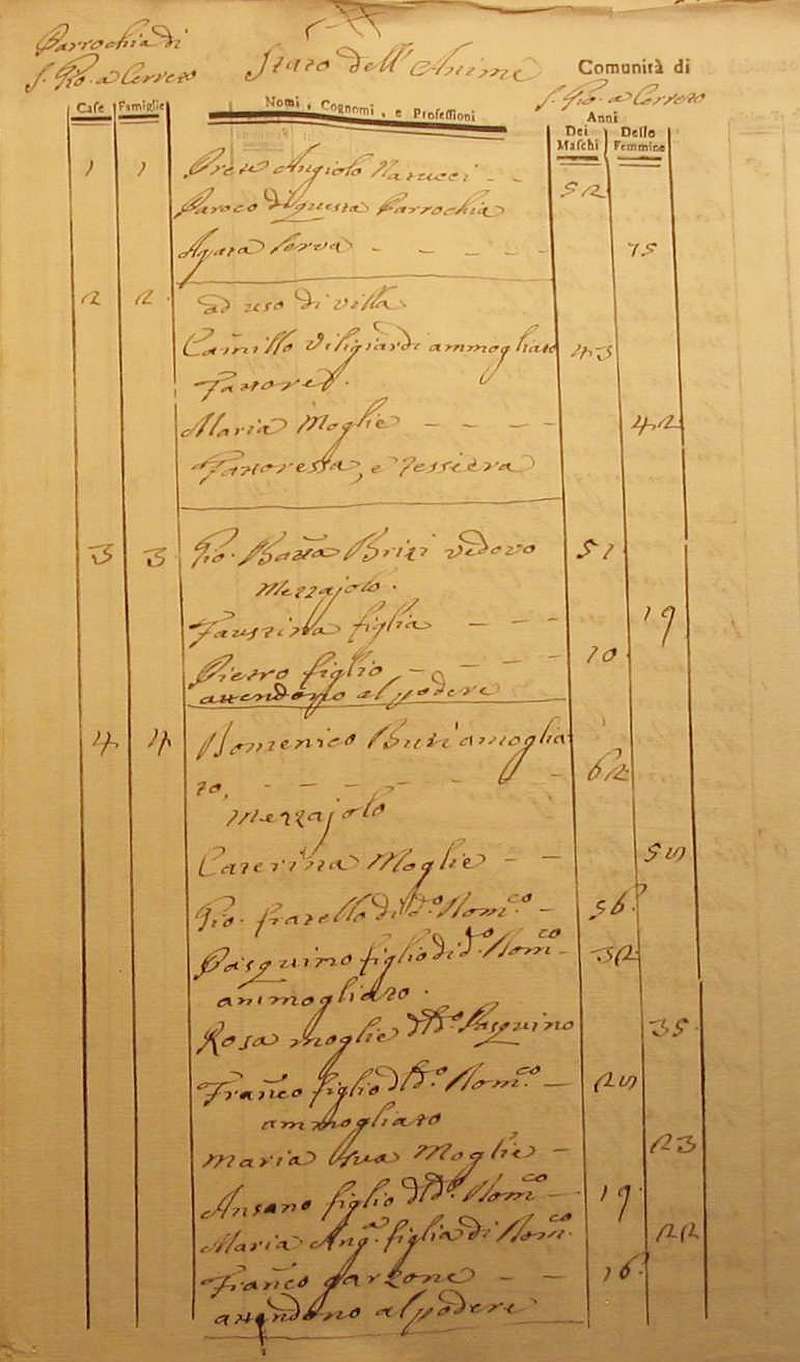 Parrochia di
S. Gio. a Cerreto
Stato dell'Anime
Comunità di
S. Gio. a Cerreto
Case Famiglie
Nomi, Cognomi, e Professioni
Anni
Dei Maschi
Delle Femmine
1 1 Prete Angiolo Nanucci - -
Paroco di questa Parrochia 52
Agata serva - - - - - 75
2 2 ad uso di villa
Camillo Viligiardi ammogliato 43
Fattore
Maria Moglie - - - - 42
Fattoressa, e Tessiera
3 3 Gio. Batta Brizi vedovo 51
Mezzajolo.
Faustina figlia - - - 19
Pietro figlio, - - - - 10
attendono al podere
4 4 Domenico Buti amoglia
to, - - - - - - 62
Mezzajolo
Caterina Moglie - - 55
Gio. fratello di do. Domco - 56
Pasquino figlio di do. Domco - 32
ammogliato.
Rosa moglie di do. Pasquino 35
Franco figlio di do. Domco - 25
ammogliato
Maria sua Moglie - 23
Ansano figlio di do. Domco - 19
Maria Anga. figlia di Domco. 22
Franco garzone - - 16
attendono al podere